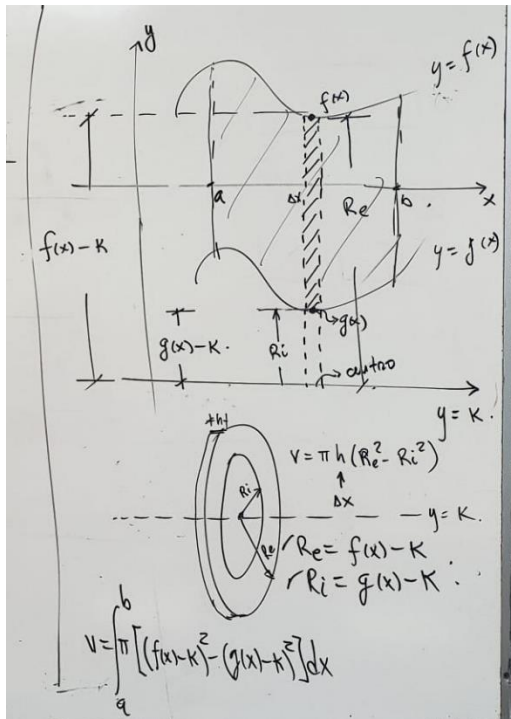 y
y = f(x)
f(x)
a
Δx
Re
b
x
f(x) - K
y = g(x)
g(x)
g(x) - K.
Ri
y = K.
+h+
V = π h (Re² - Ri²)
Δx
Ri
y = K.
Re
Re = f(x) - K
Ri = g(x) - K
V = ∫ₐᵇ π [(f(x)-K)² - (g(x)-K)²] dx